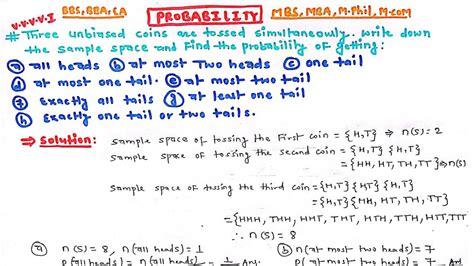 V.V.V.V.I BBS, BBA, CA PROBABILITY MBS, MBA, M.Phil, M.com
# Three unbiased coins are tossed simultaneously. write down
the sample space and find the probability of getting:
ⓐ all heads ⓑ at most two heads ⓒ one tail
ⓓ at most one tail. ⓔ at most two tail
ⓕ Exactly all tails ⓖ at least one tail
ⓗ Exactly one tail or two tails.
⇒ Solution:
Sample space of tossing the First coin = {H,T} ⇒ n(S) = 2
Sample space of tossing the second coin = {H,T} {H,T}
= {HH, HT, TH, TT} ⇒ n(S)=
Sample space of tossing the third coin = {H,T} {H,T} {H,T}
= {H,T} {HH, HT, TH, TT}
= {HHH, THH, HHT, THT, HTH, TTH, HTT, TTT
∴ n(S) = 8
ⓐ n(S) = 8, n(all heads) = 1
ⓑ n(at most two heads) = 7
P(all heads) = 1 Ans.
P(at most two heads) = 7